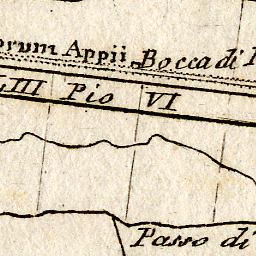 orum Appii Bocca di
LIII Pio VI
Passo di